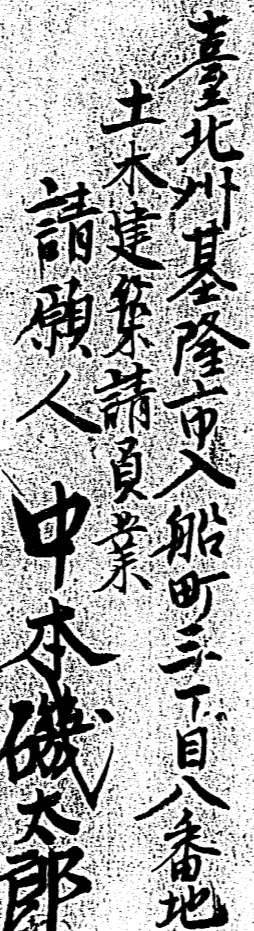 臺北州基隆市入船町三丁目八番地
土木建築請負業
請願人 中本磯太郎